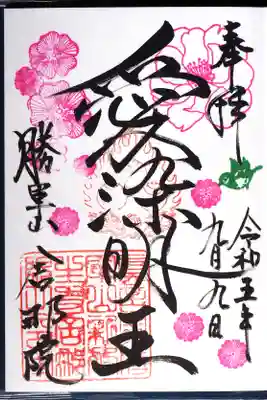 奉拝
令和五年
九月九日
愛染明王
勝楽山
舎那院